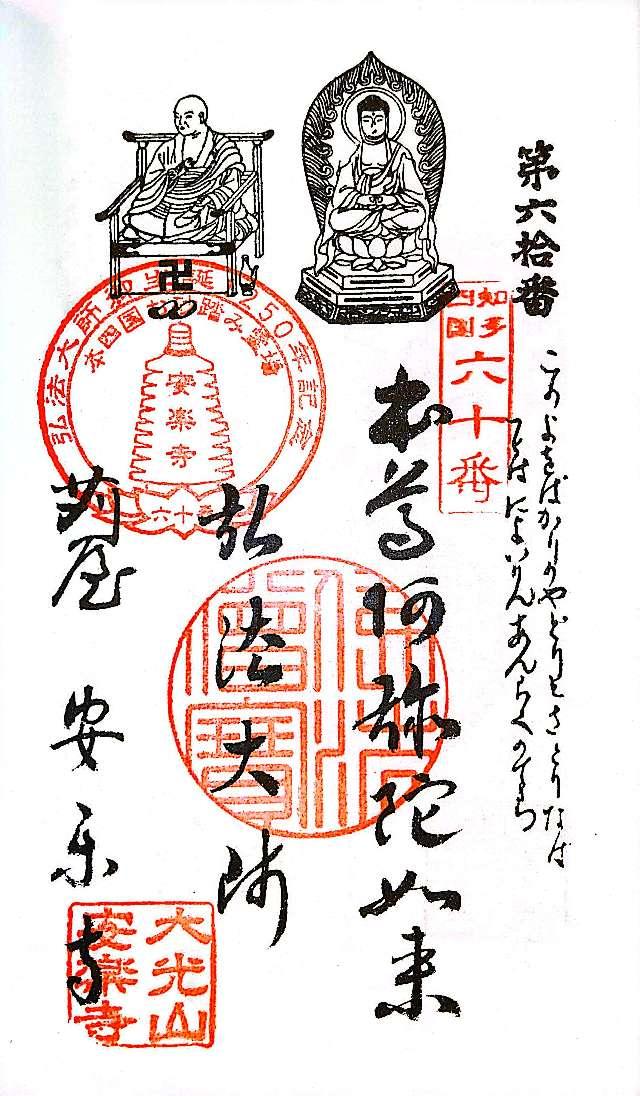 第六拾番
このよをばかりのやどりとさとりなば
あんらくのてら
知多
四国
六十番
本尊阿弥陀如来
弘法大師
苅屋 安楽寺
弘法大師御生誕1250年記念
本四國お砂踏み霊場
安楽寺
六十番
佛法僧寶
大光山
安楽寺